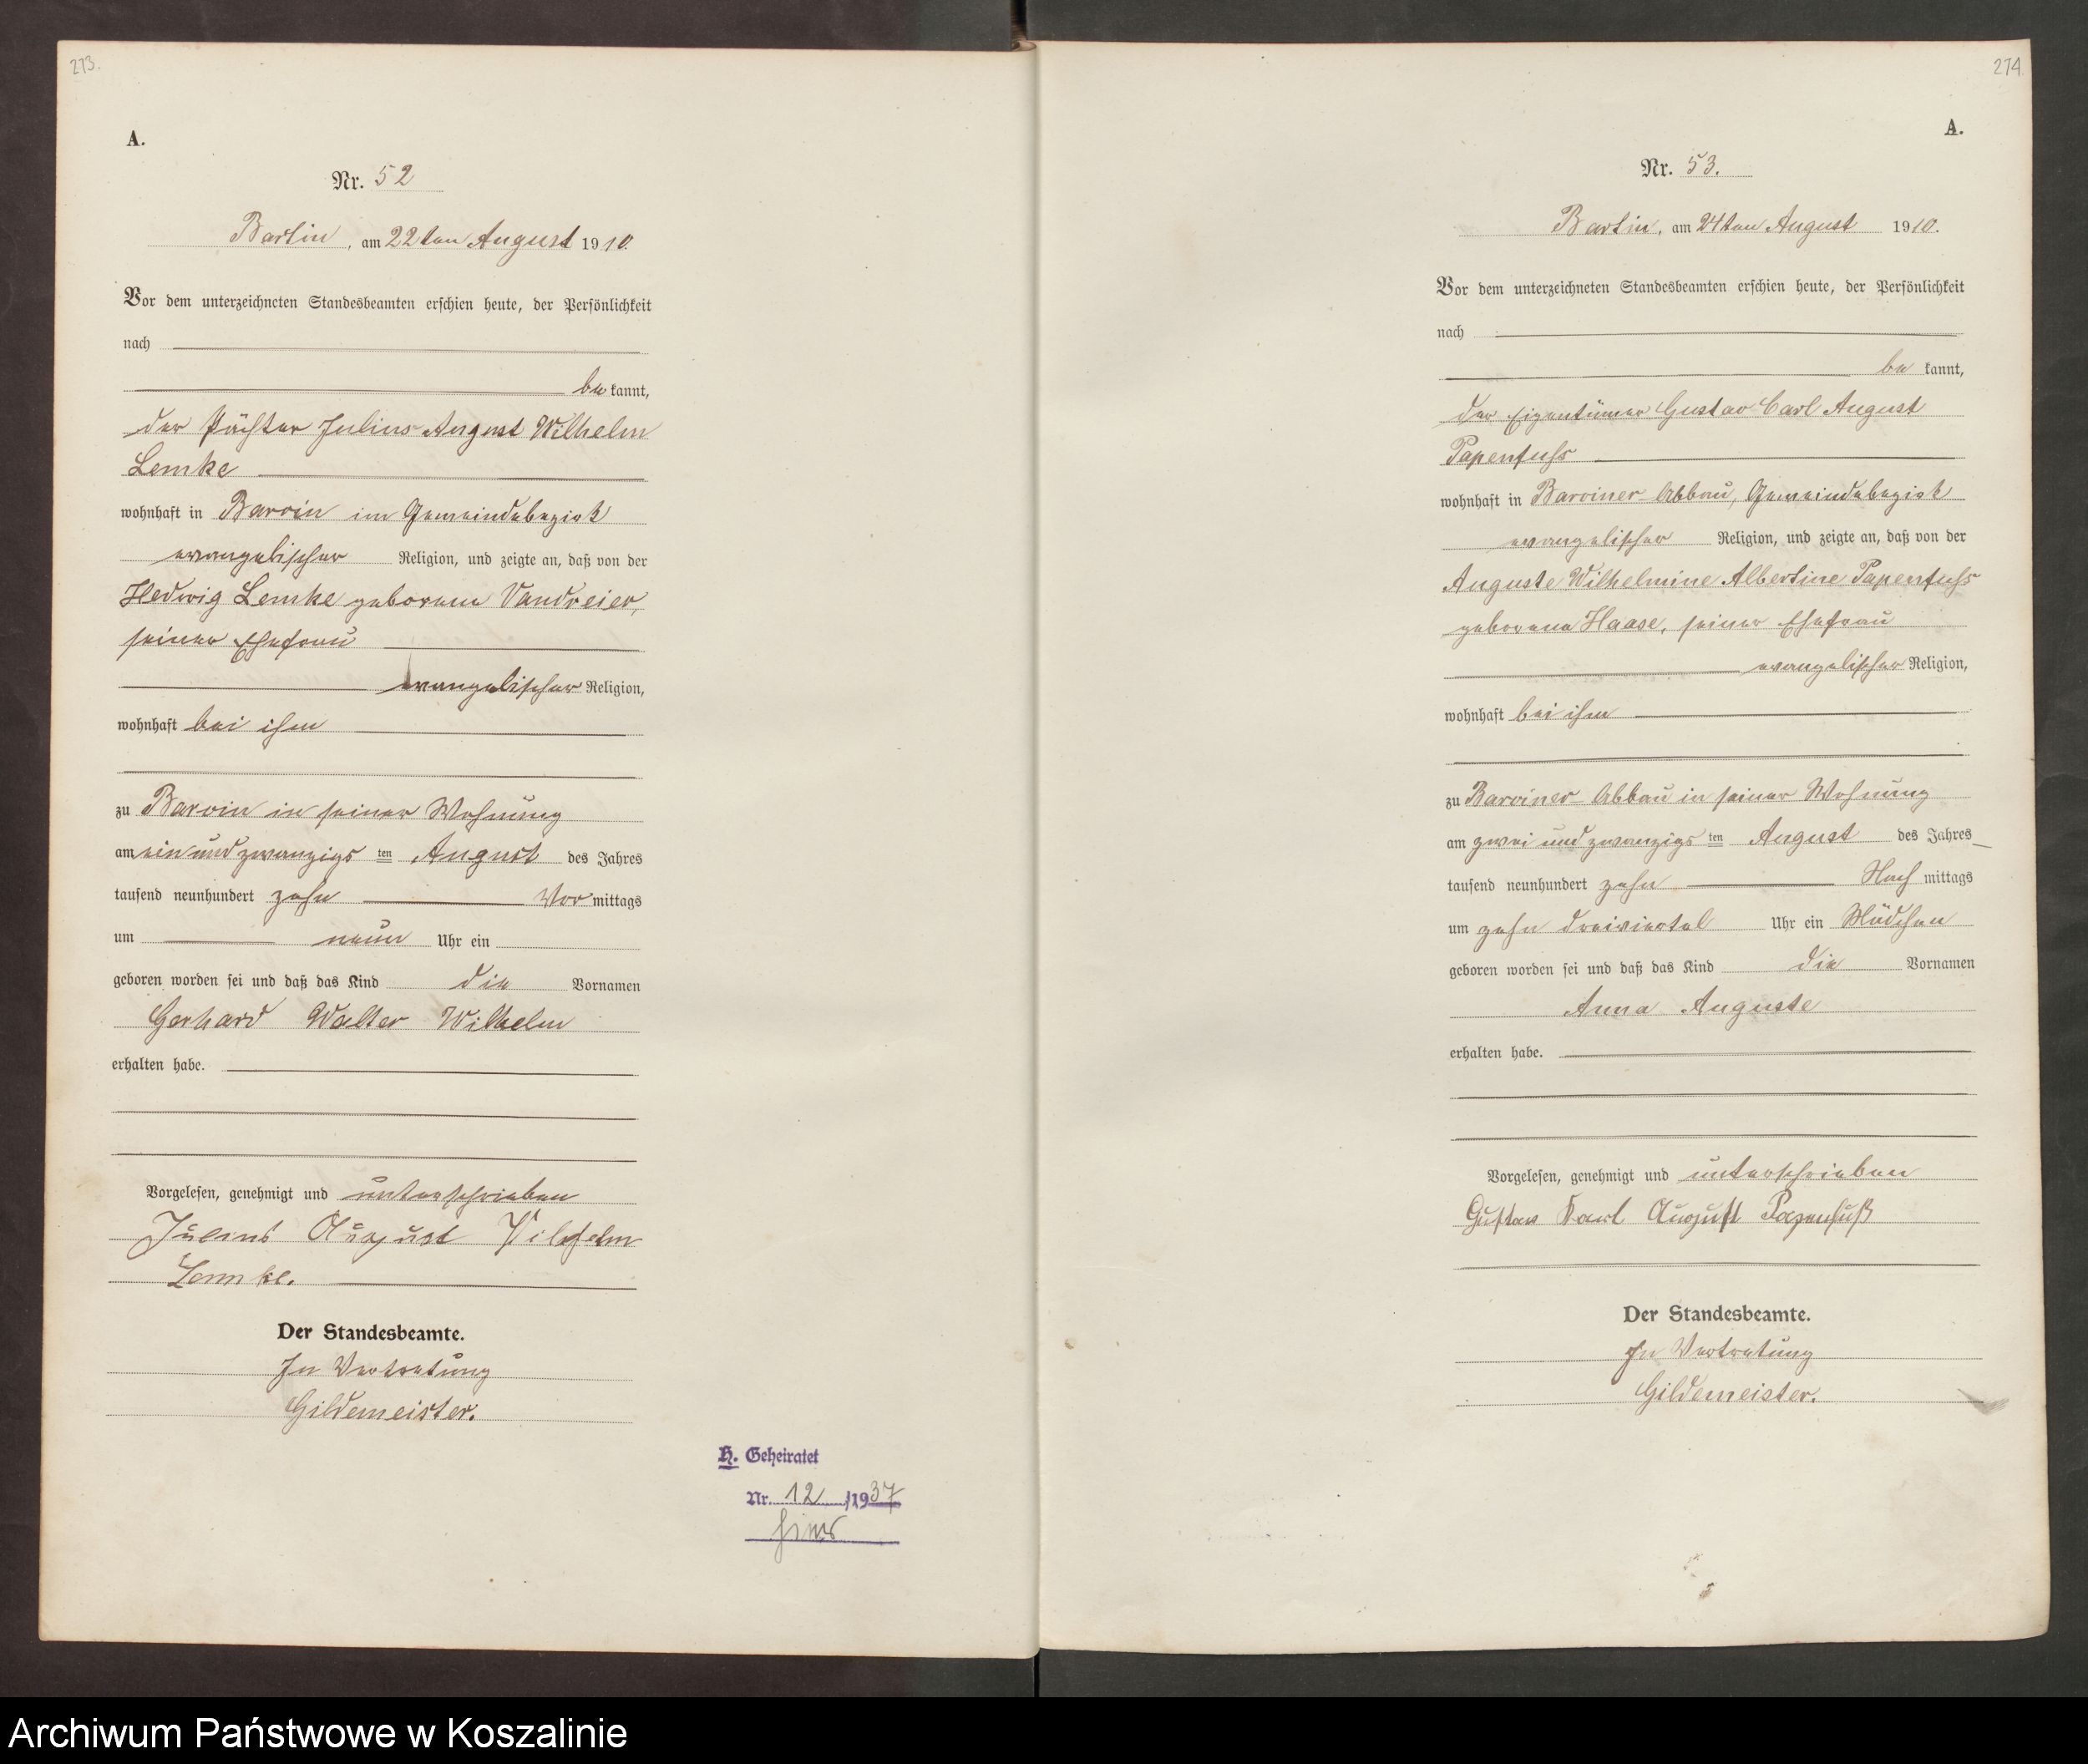 273.
A.
Nr. 52
Bartin, am 22ten August 1910.
Vor dem unterzeichneten Standesbeamten erschien heute, der Persönlichkeit
nach
be kannt,
der Pächter Julius August Wilhelm
Lemke
wohnhaft in Barvin im Gemeindebezirk
evangelischer Religion, und zeigte an, daß von der
Hedwig Lemke geborene Vandreier,
seiner Ehefrau
evangelischer Religion,
wohnhaft bei ihm
zu Barvin in seiner Wohnung
am ein und zwanzigs ten August des Jahres
tausend neunhundert zehn Vor mittags
um neun Uhr ein
geboren worden sei und daß das Kind die Vornamen
Gerhard Walter Wilhelm
erhalten habe.
Vorgelesen, genehmigt und unterschrieben
Julius August Wilhelm
Lemke.
Der Standesbeamte.
In Vertretung
Gildemeister.
H. Geheiratet
Nr. 12 /1937
274
A.
Nr. 53.
Bartin, am 24ten August 1910.
Vor dem unterzeichneten Standesbeamten erschien heute, der Persönlichkeit
nach
be kannt,
der Eigentümer Gustav Carl August
Papenfuss
wohnhaft in Barviner-Abbau, Gemeindebezirk
evangelischer Religion, und zeigte an, daß von der
Auguste Wilhelmine Albertine Papenfuss
geborene Haase, seiner Ehefrau
evangelischer Religion,
wohnhaft bei ihm
zu Barviner-Abbau in seiner Wohnung
am zwei und zwanzigs ten August des Jahres
tausend neunhundert zehn Nach mittags
um zehn dreiviertel Uhr ein Mädchen
geboren worden sei und daß das Kind die Vornamen
Anna Auguste
erhalten habe.
Vorgelesen, genehmigt und unterschrieben
Gustav Karl August Papenfuß
Der Standesbeamte.
In Vertretung
Gildemeister.
Archiwum Państwowe w Koszalinie